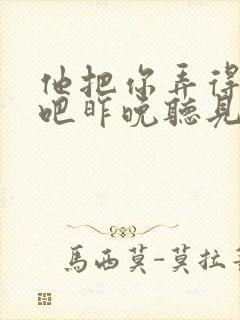 他把你弄得
吧昨晚聽見
馬西莫-莫拉